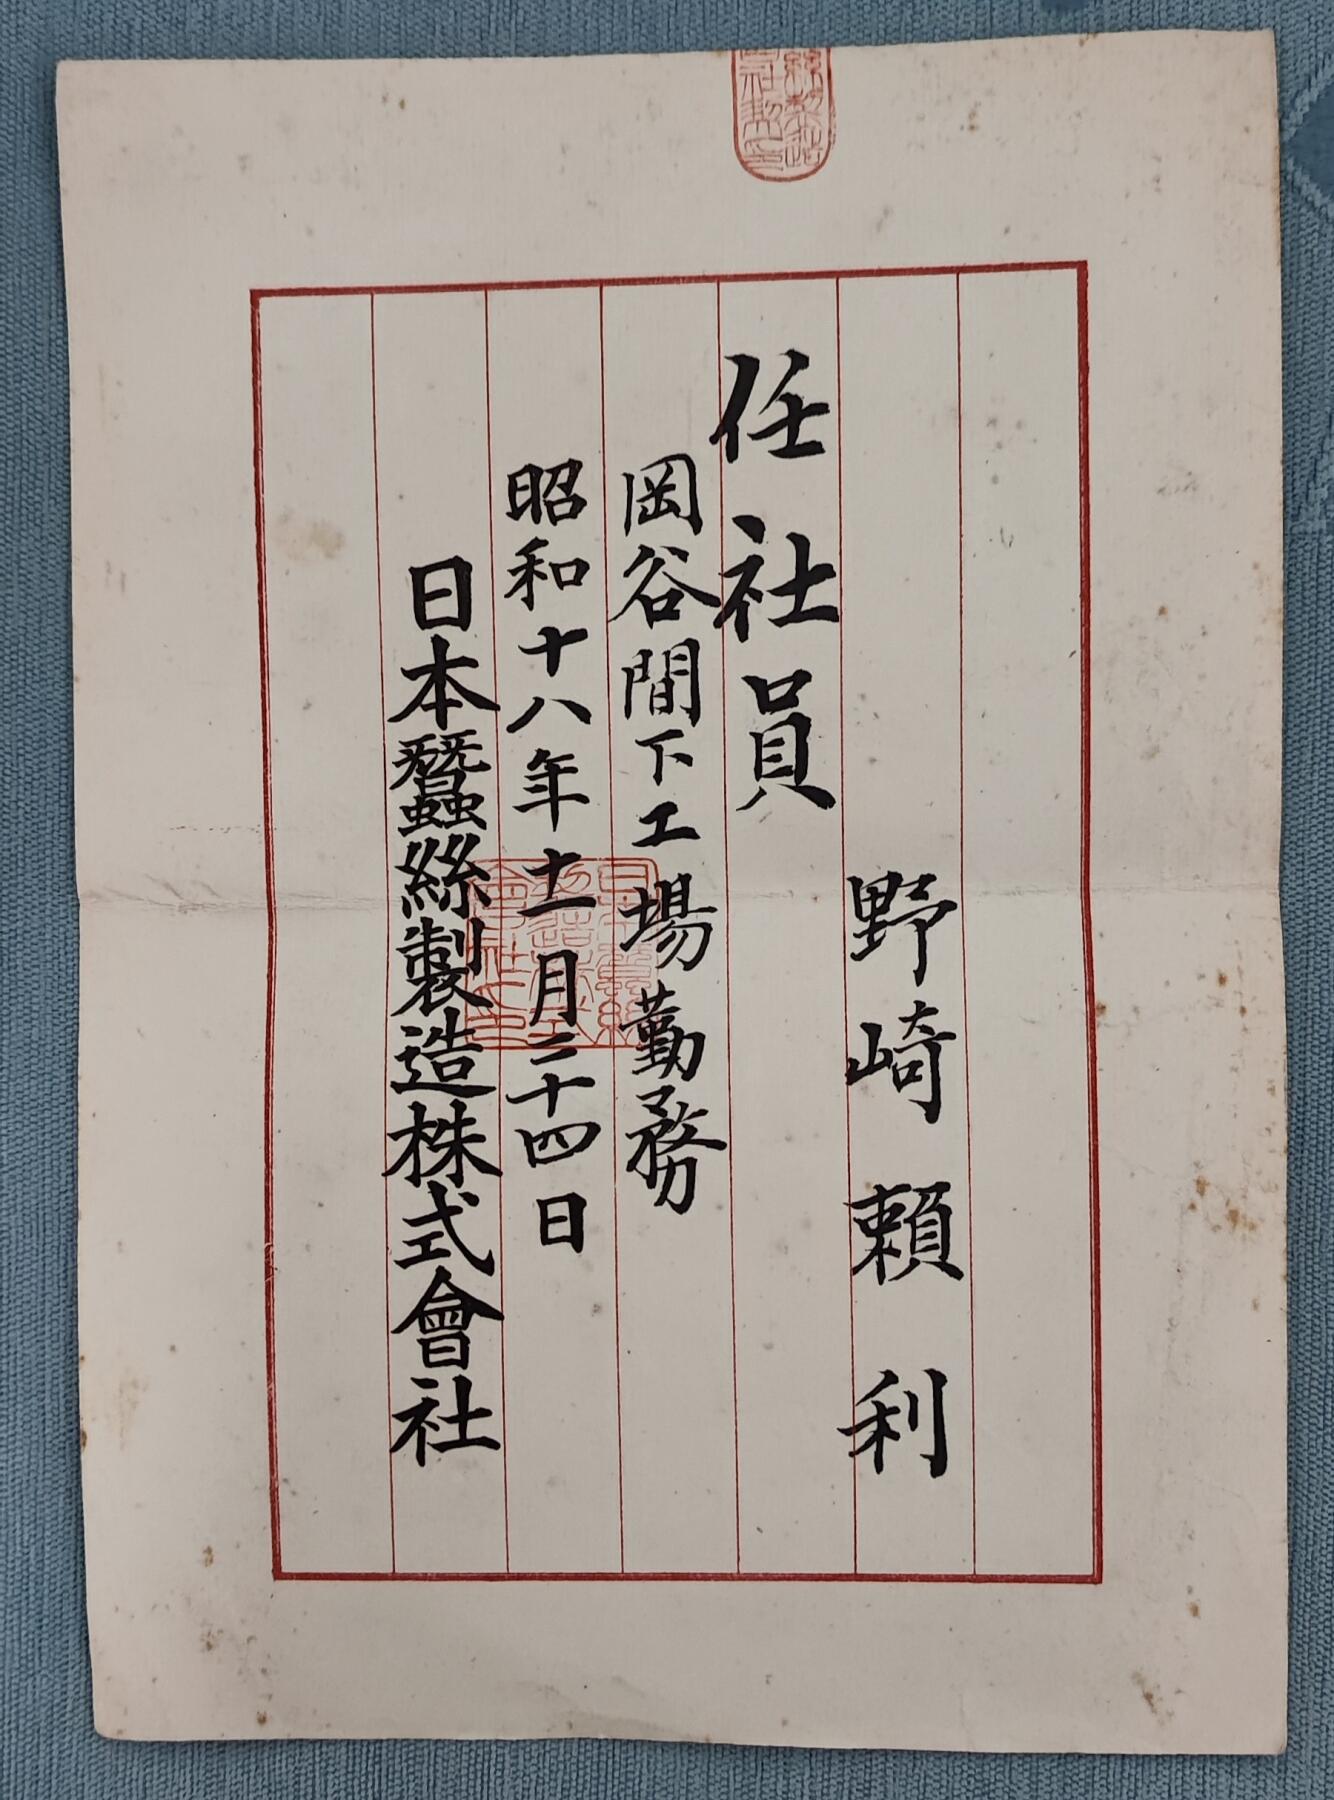 野崎頼利
任社員
岡谷間下工場勤務
昭和十八年十一月二十四日
日本蠶絲製造株式會社